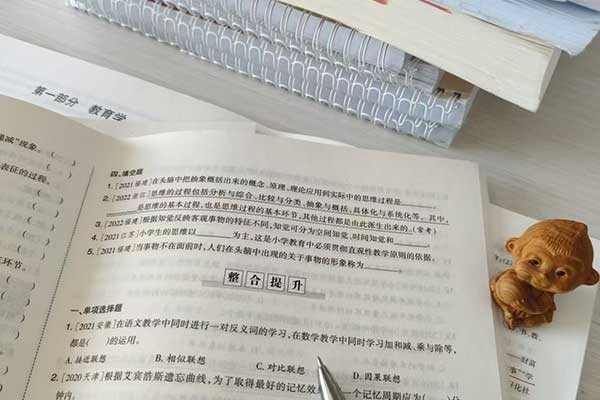 第一部分 教育学
递减”现象。
表征的过程。
环节。
四、填空题
1. [2021福建]在头脑中把抽象概括出来的概念、原理、理论应用到实际中的思维过程是
2. [2022浙江]思维的过程包括分析与综合、比较与分类、抽象与概括、具体化与系统化等。其中,
是思维的基本过程,也是思维过程的基本环节,其他过程都是由此派生出来的。(参考)
3. [2022福建]根据知觉反映客观事物的特征不同,知觉可分为空间知觉、时间知觉和
4. [2021江苏]小学生的思维以 为主,这是小学教育中必须贯彻在直观性教学原则的依据。
5. [2021福建]当事物不在面前时,人们在头脑中出现的关于事物的形象称为 。
整合提升
一、单项选择题
1. [2021安徽]在语文教学中同时进行一对反义词的学习,在数学教学中同时学习加和减、乘与除等,
都是( )的运用。
A. 接近联想 B. 相似联想 C. 对比联想 D. 因果联想
2. [2020天津]根据艾宾浩斯遗忘曲线,为了取得最好的记忆效 一个记忆周期应为( )分
钟内。